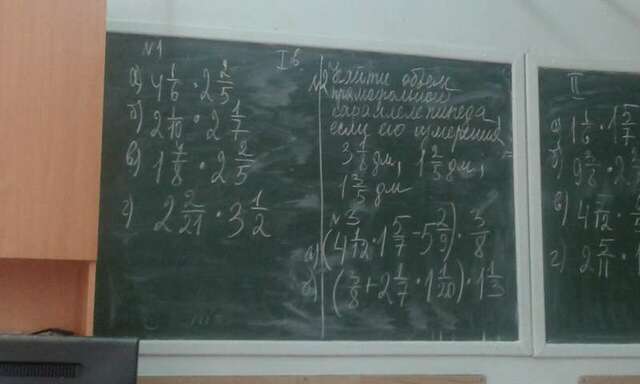 №1
I в.
а) 4 1/6 · 2 2/5
б) 2 1/10 · 2 1/7
в) 1 7/8 · 2 2/5
г) 2 2/21 · 3 1/2
№2 Найти объем
прямоугольного
параллелепипеда
если его измерения
3 1/8 дм, 1 2/5 дм,
1 3/5 дм
№3
а) (4 1/12 · 1 5/7 - 5 2/9) · 3/8
б) (3/8 + 2 1/7 · 1 1/20) · 1 1/3
II
а) 1 1/6 · 1 5/7
б)
в) 4 5/12
г) 2 5/11